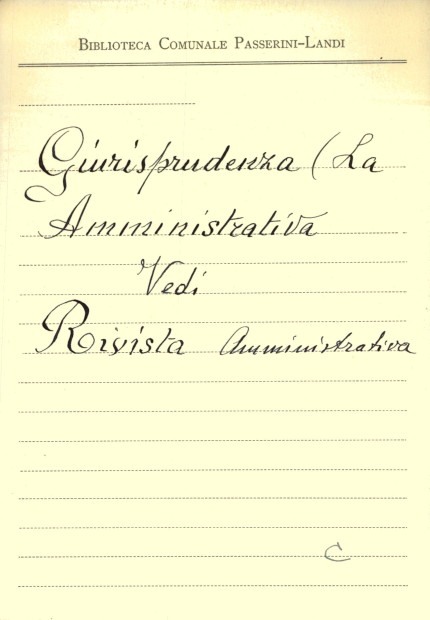 BIBLIOTECA COMUNALE PASSERINI-LANDI
Giurisprudenza (La
Amministrativa
Vedi
Rivista Amministrativa
C